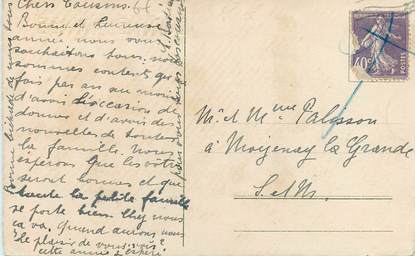 Chers Cousins
Bonne et heureuse
année nous vous
souhaitons tous, nous
sommes contents que
fois par an au moins
d'avoir l'occasion de
donner et d'avoir des
nouvelles de toute
la famille. Nous
espérons que les vôtres
seront bonnes et que
toute la petite famille
se porte bien. Chez nous
ça va. Quand aurons nous
le plaisir de vous voir?
cette année j'espère
Bonne
de nous tous
pour vous tous
M. et Mme Palisson
à Moigenay la Grande
S. et M.
40c